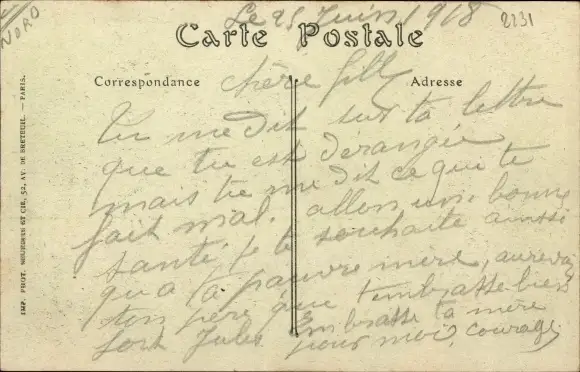 NORD
Le 25 Juin 1918
2231
Carte Postale
Correspondance
Adresse
chère fille
Tu me dit sur ta lettre
que tu est dérangée
mais tu me dit ce qui te
fait mal. allon une bonne
santé, je te souhaite ainssi
qu'a ta pauvre mère, aurevoir
ton père que t'embrasse bien
fort Jules Embrasse ta mère
pour moi, courage
IMP. PHOT. NEURDEIN ET CIE, 52, AV. DE BRETEUIL. — PARIS.